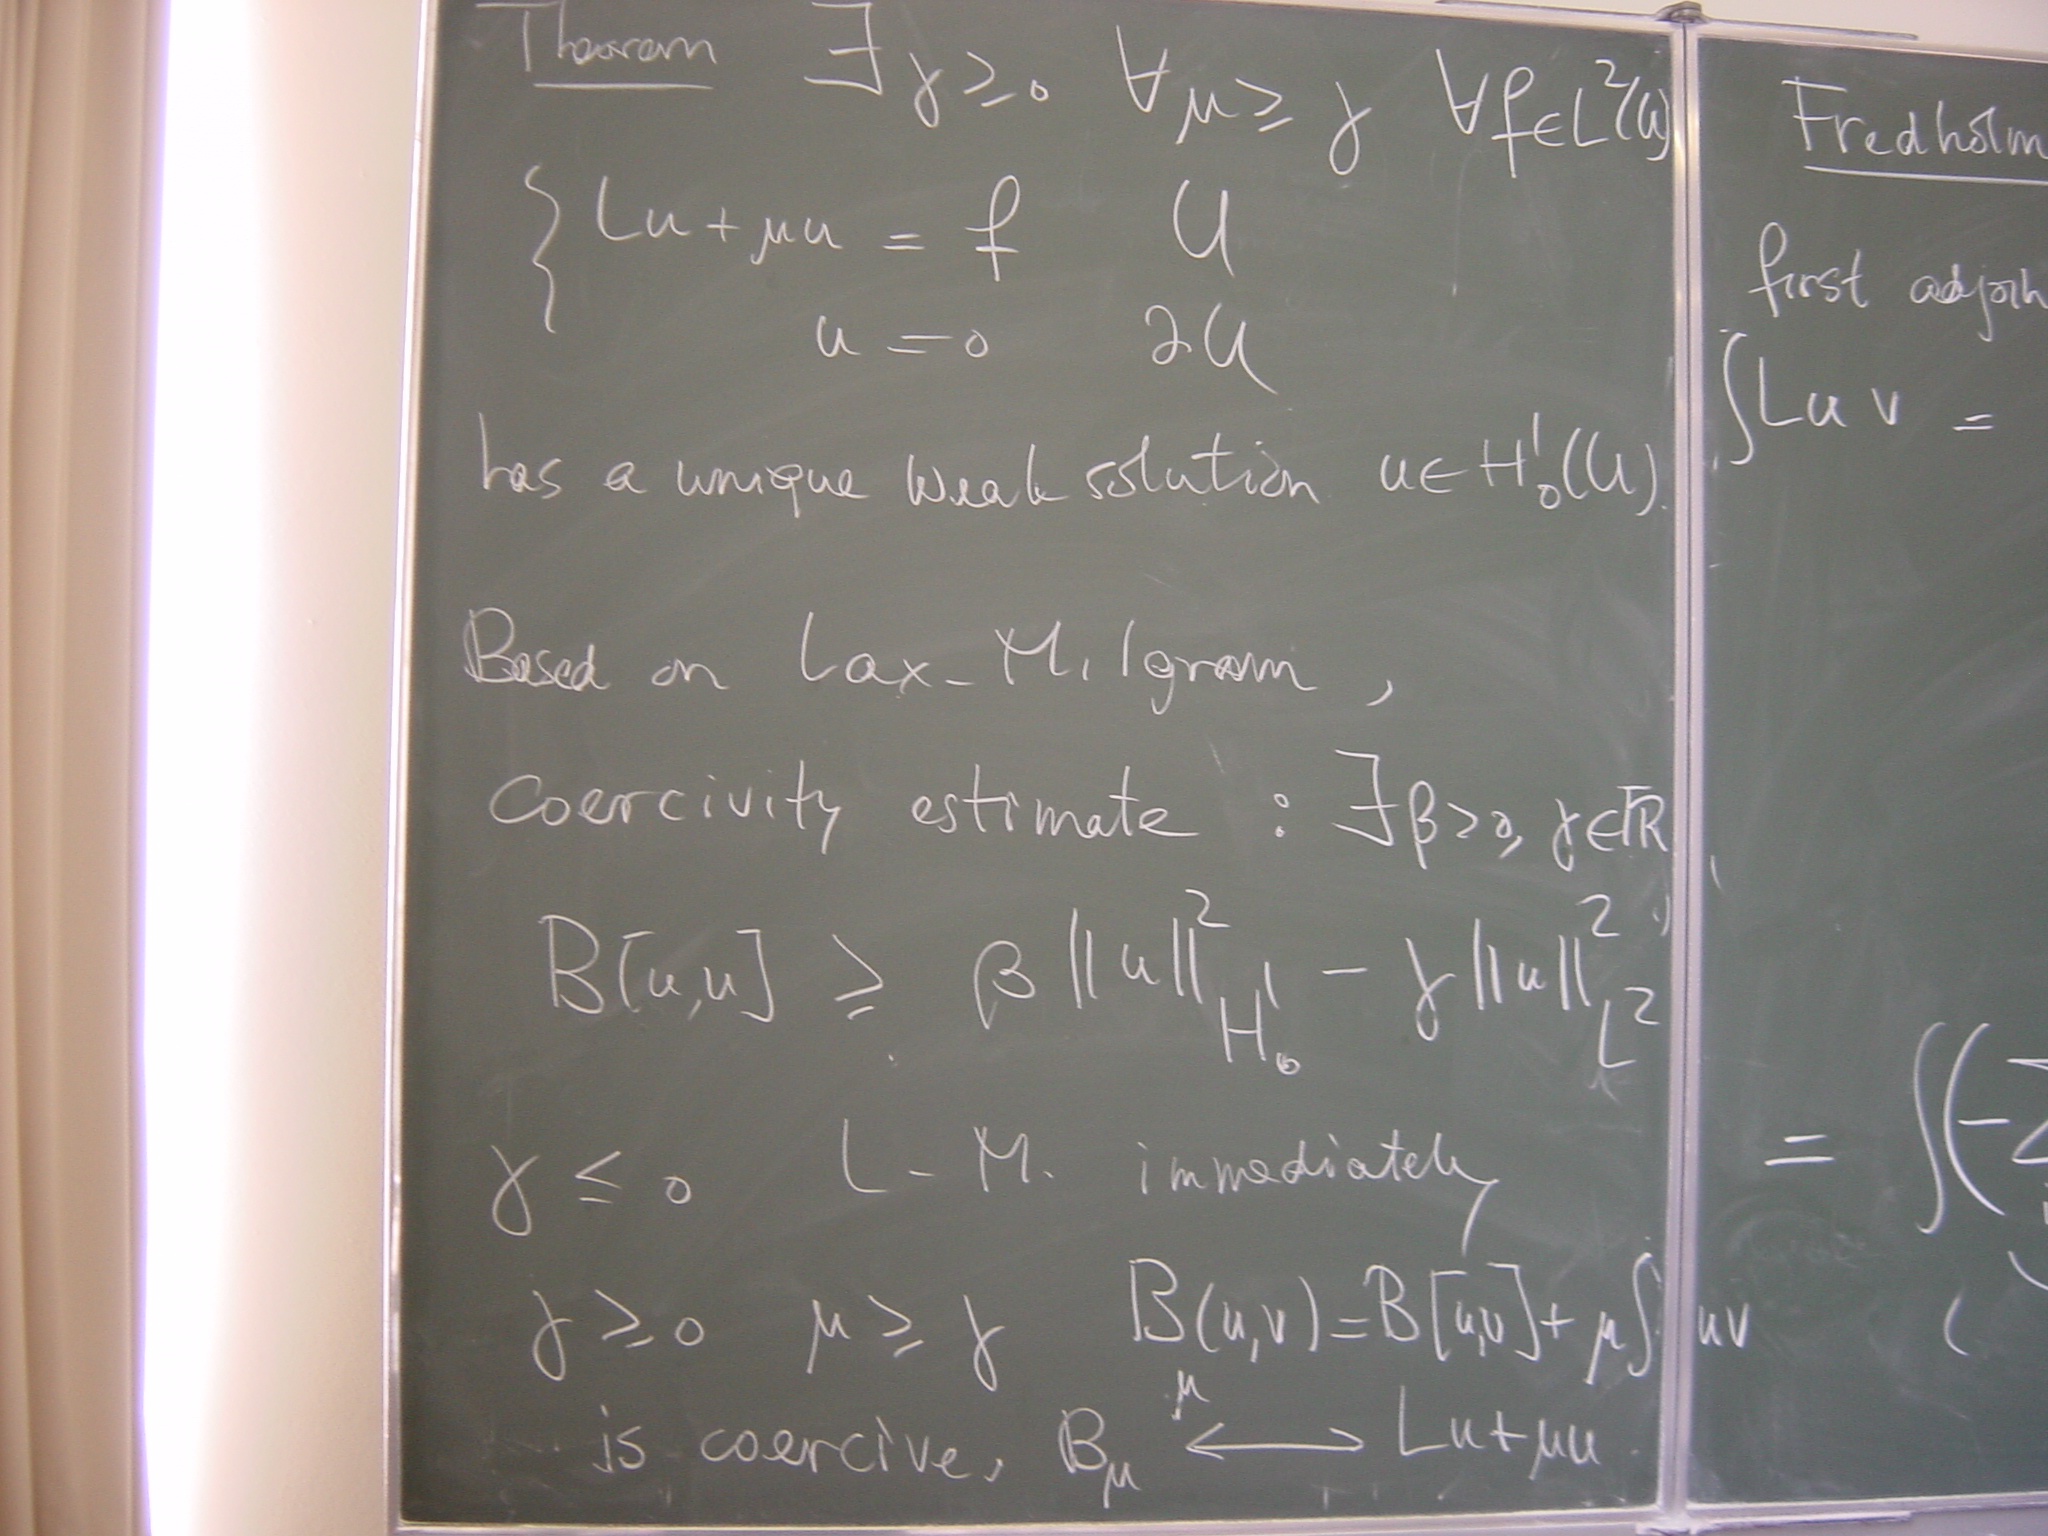 Theorem ∃ γ ≥ 0 ∀ μ ≥ γ ∀ f ∈ L²(U)
{ Lu + μu = f U
u = 0 ∂U
has a unique weak solution u ∈ H¹₀(U).
Based on Lax-Milgram,
coercivity estimate : ∃ β > 0, γ ∈ ℝ,
B[u,u] ≥ β ||u||²_{H¹₀} - γ ||u||²_{L²}
γ ≤ 0 L-M. immediately
γ ≥ 0 μ ≥ γ B_μ(u,v) = B[u,v] + μ∫uv
is coercive, B_μ ⟷ Lu + μu.
Fredholm
first adjoin
∫Lu v =
= ∫(-Σ
(